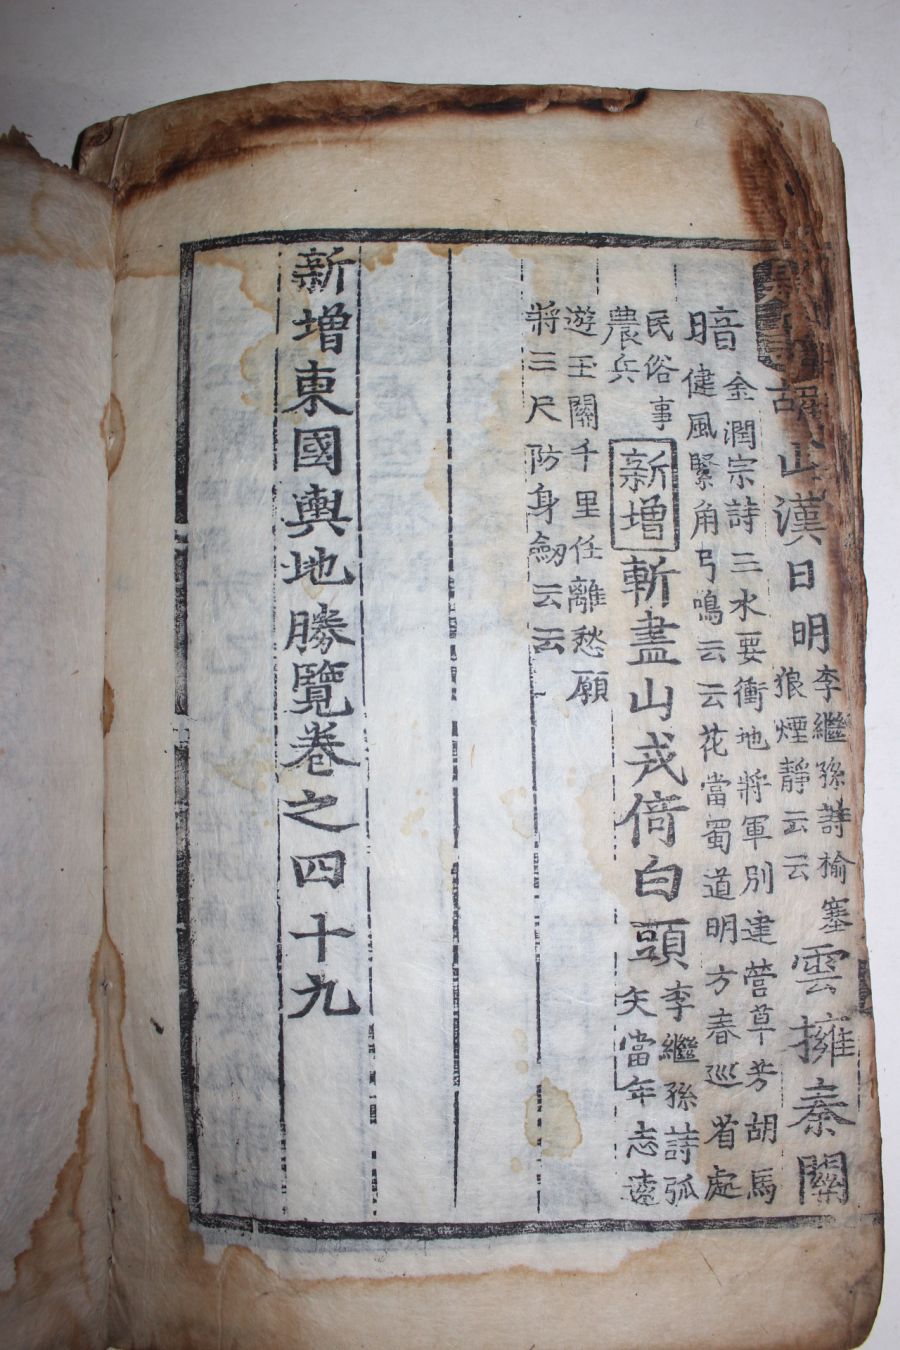 胡山漢日明
李繼孫詩榆塞
狼煙靜云云
雲擁秦關
暗
金潤宗詩三水要衝地將軍別建營草芳胡馬
健風緊角弓鳴云云花當蜀道明方春巡省處
民俗事
農兵
新增
斬盡山戎倚白頭
李繼孫詩弧
矢當年志遠
遊玉關千里任離愁願
將三尺防身劒云云
新增東國輿地勝覽卷之四十九